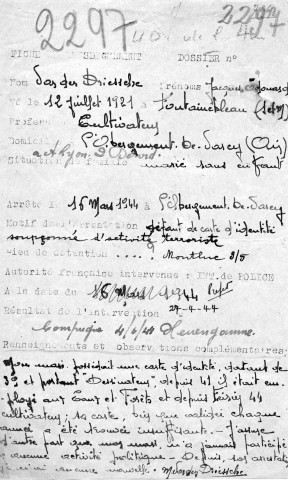 2297
2297
FICHE DE RENSEIGNEMENT DOSSIER n°
Nom Van der Driessche Prénoms Jacques Edouard
Né le 12 juillet 1921 à Fontainebleau (S et M)
Profession Cultivateur
Domicile L'Abergement-De-Varey (Ain)
Situation de famille marié sans enfant
Arrêté le 16 Mars 1944 à L'Abergement-De-Varey
Motif de l'arrestation défaut de carte d'identité
soupçonné d'activité terroriste
Lieu de détention . . . . . Montluc
Autorité française intervenue : INT. de POLICE
A la date du Mars 1944
27-4-44
Résultat de l'intervention
Compiègne 4/6/44 Neuengamme.
Renseignements et observations complémentaires:
Mon mari possédait une carte d'identité, datant de
39 et portant Dessinateur, depuis 41 il était em-
ployé aux Eaux et Forêts et depuis février 44
cultivateur; sa carte, bien que validée chaque
année a été trouvée insuffisante. - J'assure
d'autre part que mon mari n'a jamais participé
à aucune activité politique. - Depuis son arrestation
je n'ai aucune nouvelle. Driessche